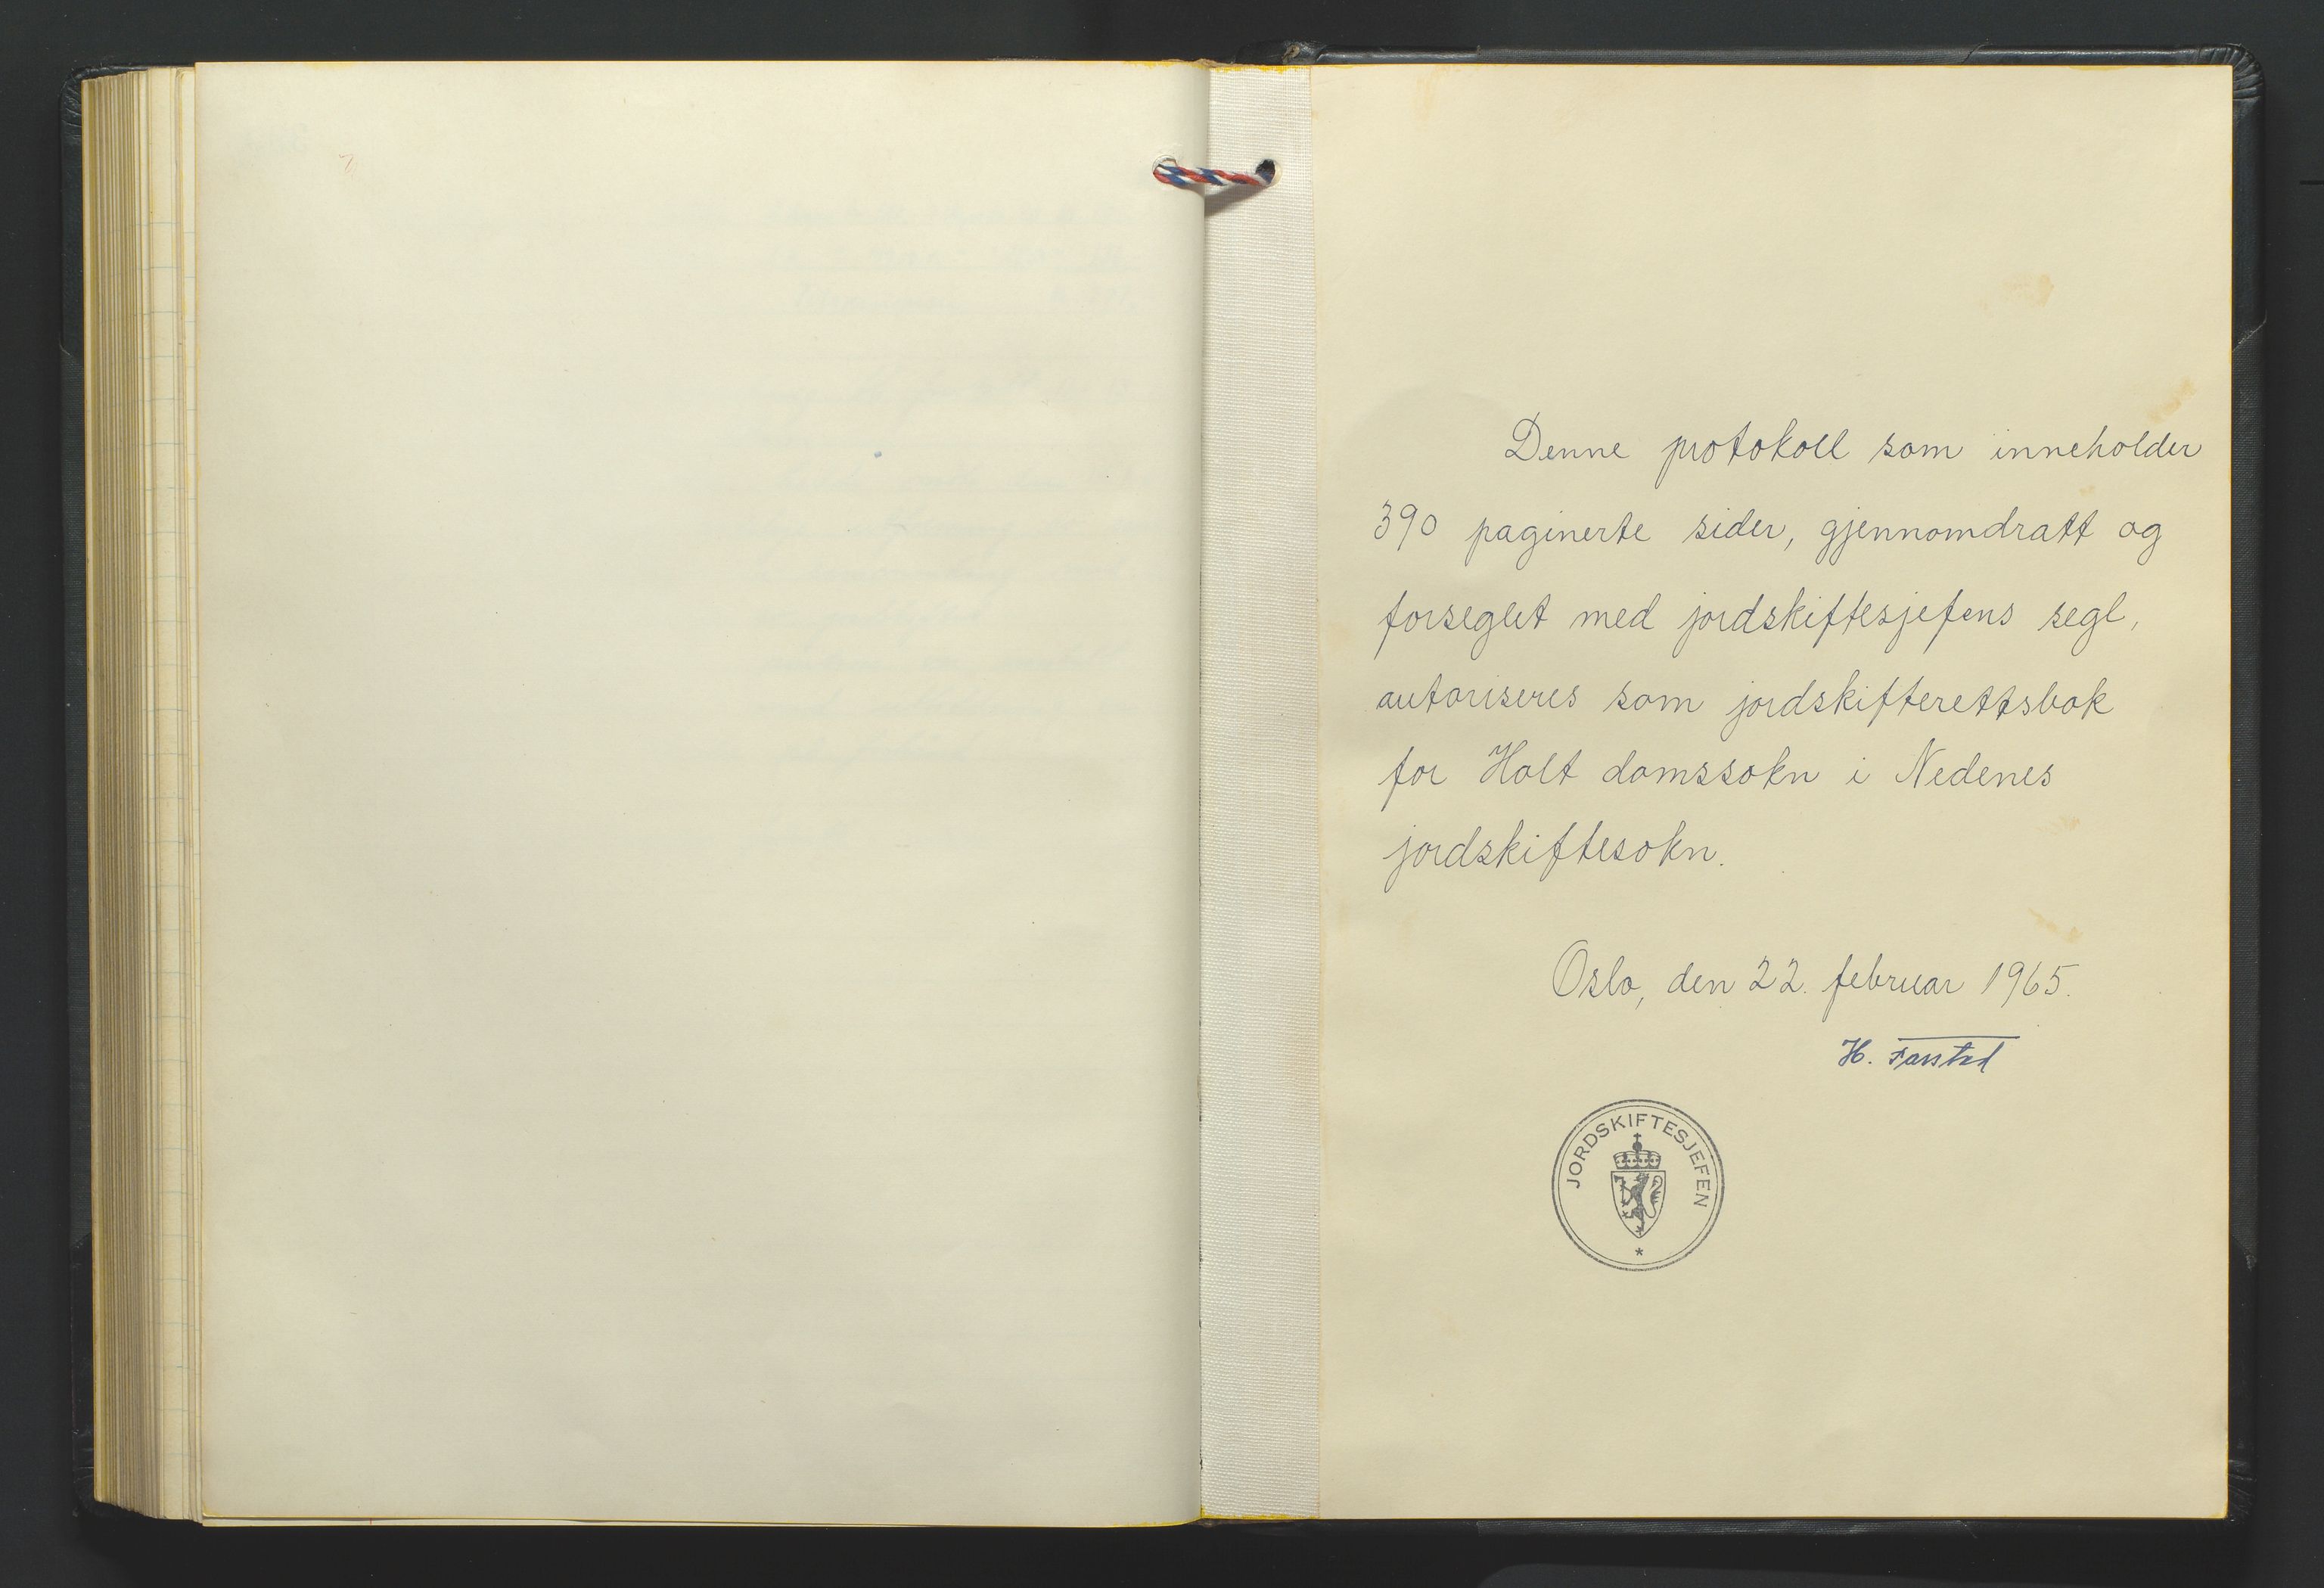 Denne protokoll som inneholder
390 paginerte sider, gjennomdratt og
forseglet med jordskiftesjefens segl,
autoriseres som jordskifterettsbok
for Holt domssokn i Nedenes
jordskiftesokn.
Oslo, den 22. februar 1965.
H. Farstad
JORDSKIFTESJEFEN
*